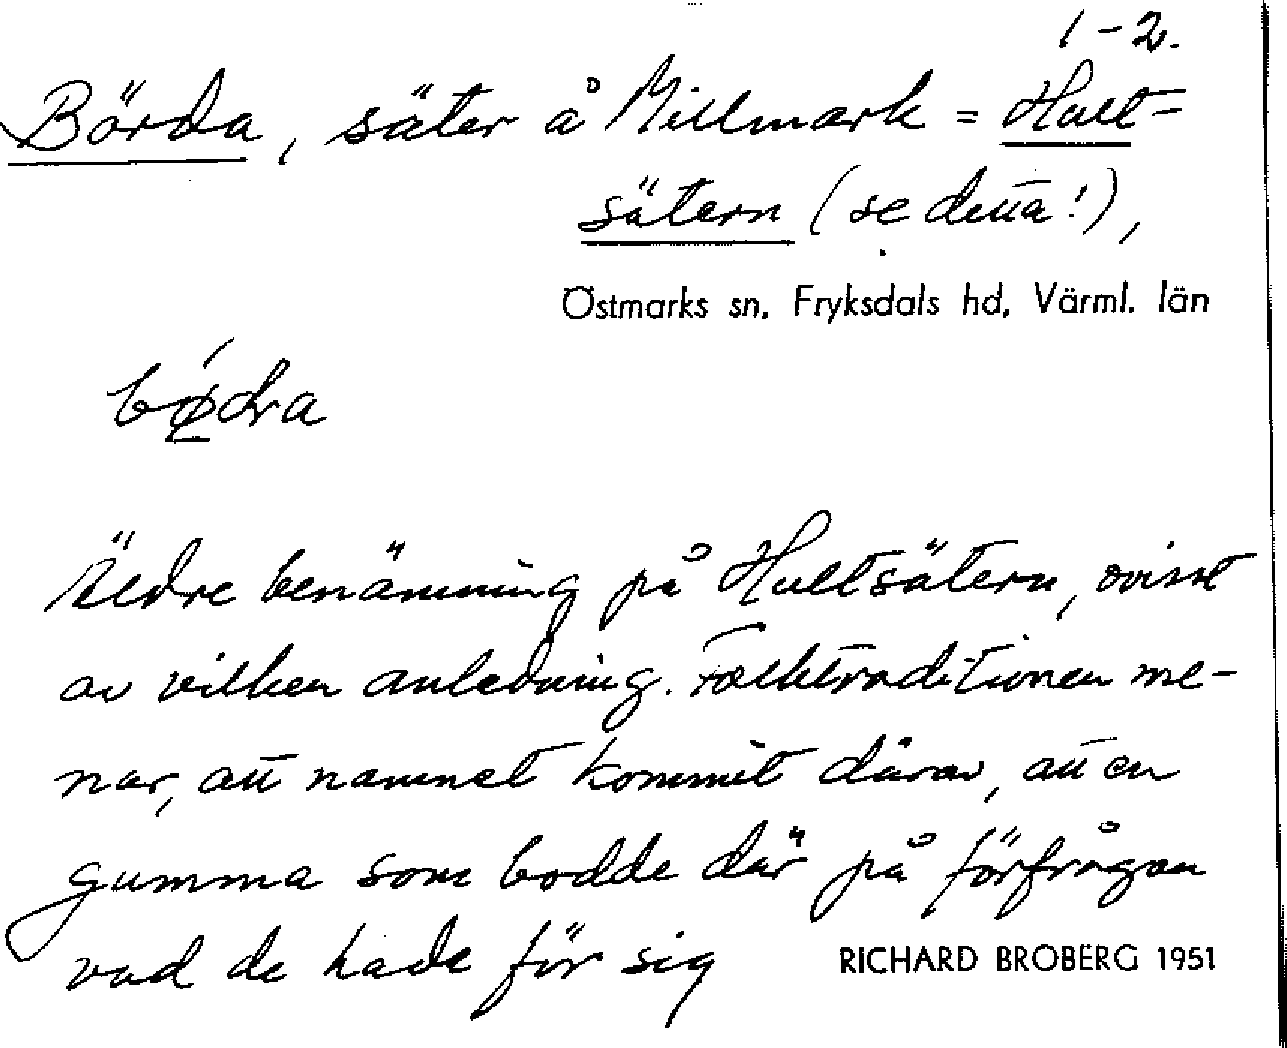 1-2.
Börda, säter å Millmark = Hult-
sätern (se detta!),
Östmarks sn, Fryksdals hd, Värml. län
bø̀dra
Äldre benämning på Hultsätern, ovisst
av vilken anledning. Folktraditionen me-
nar, att namnet kommit därav, att en
gumma som bodde där på förfrågan
vad de hade för sig
RICHARD BROBERG 1951